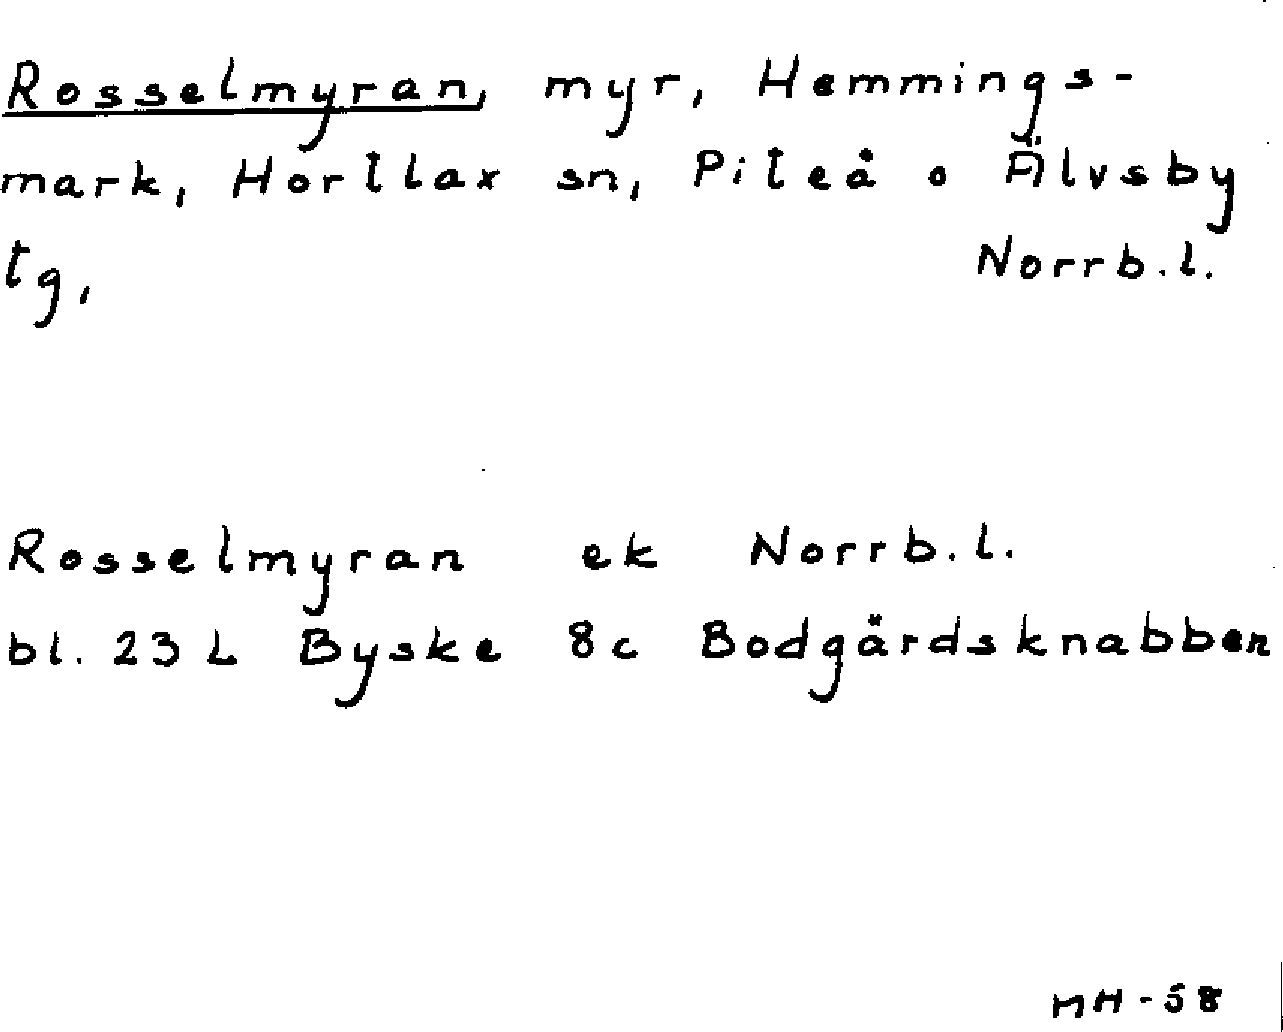 Rosselmyran, myr, Hemmings-
mark, Hortlax sn, Piteå o Älvsby
tg, Norrb.l.
Rosselmyran ek Norrb.l.
bl. 23 L Byske 8c Bodgärdsknabben
MH-58